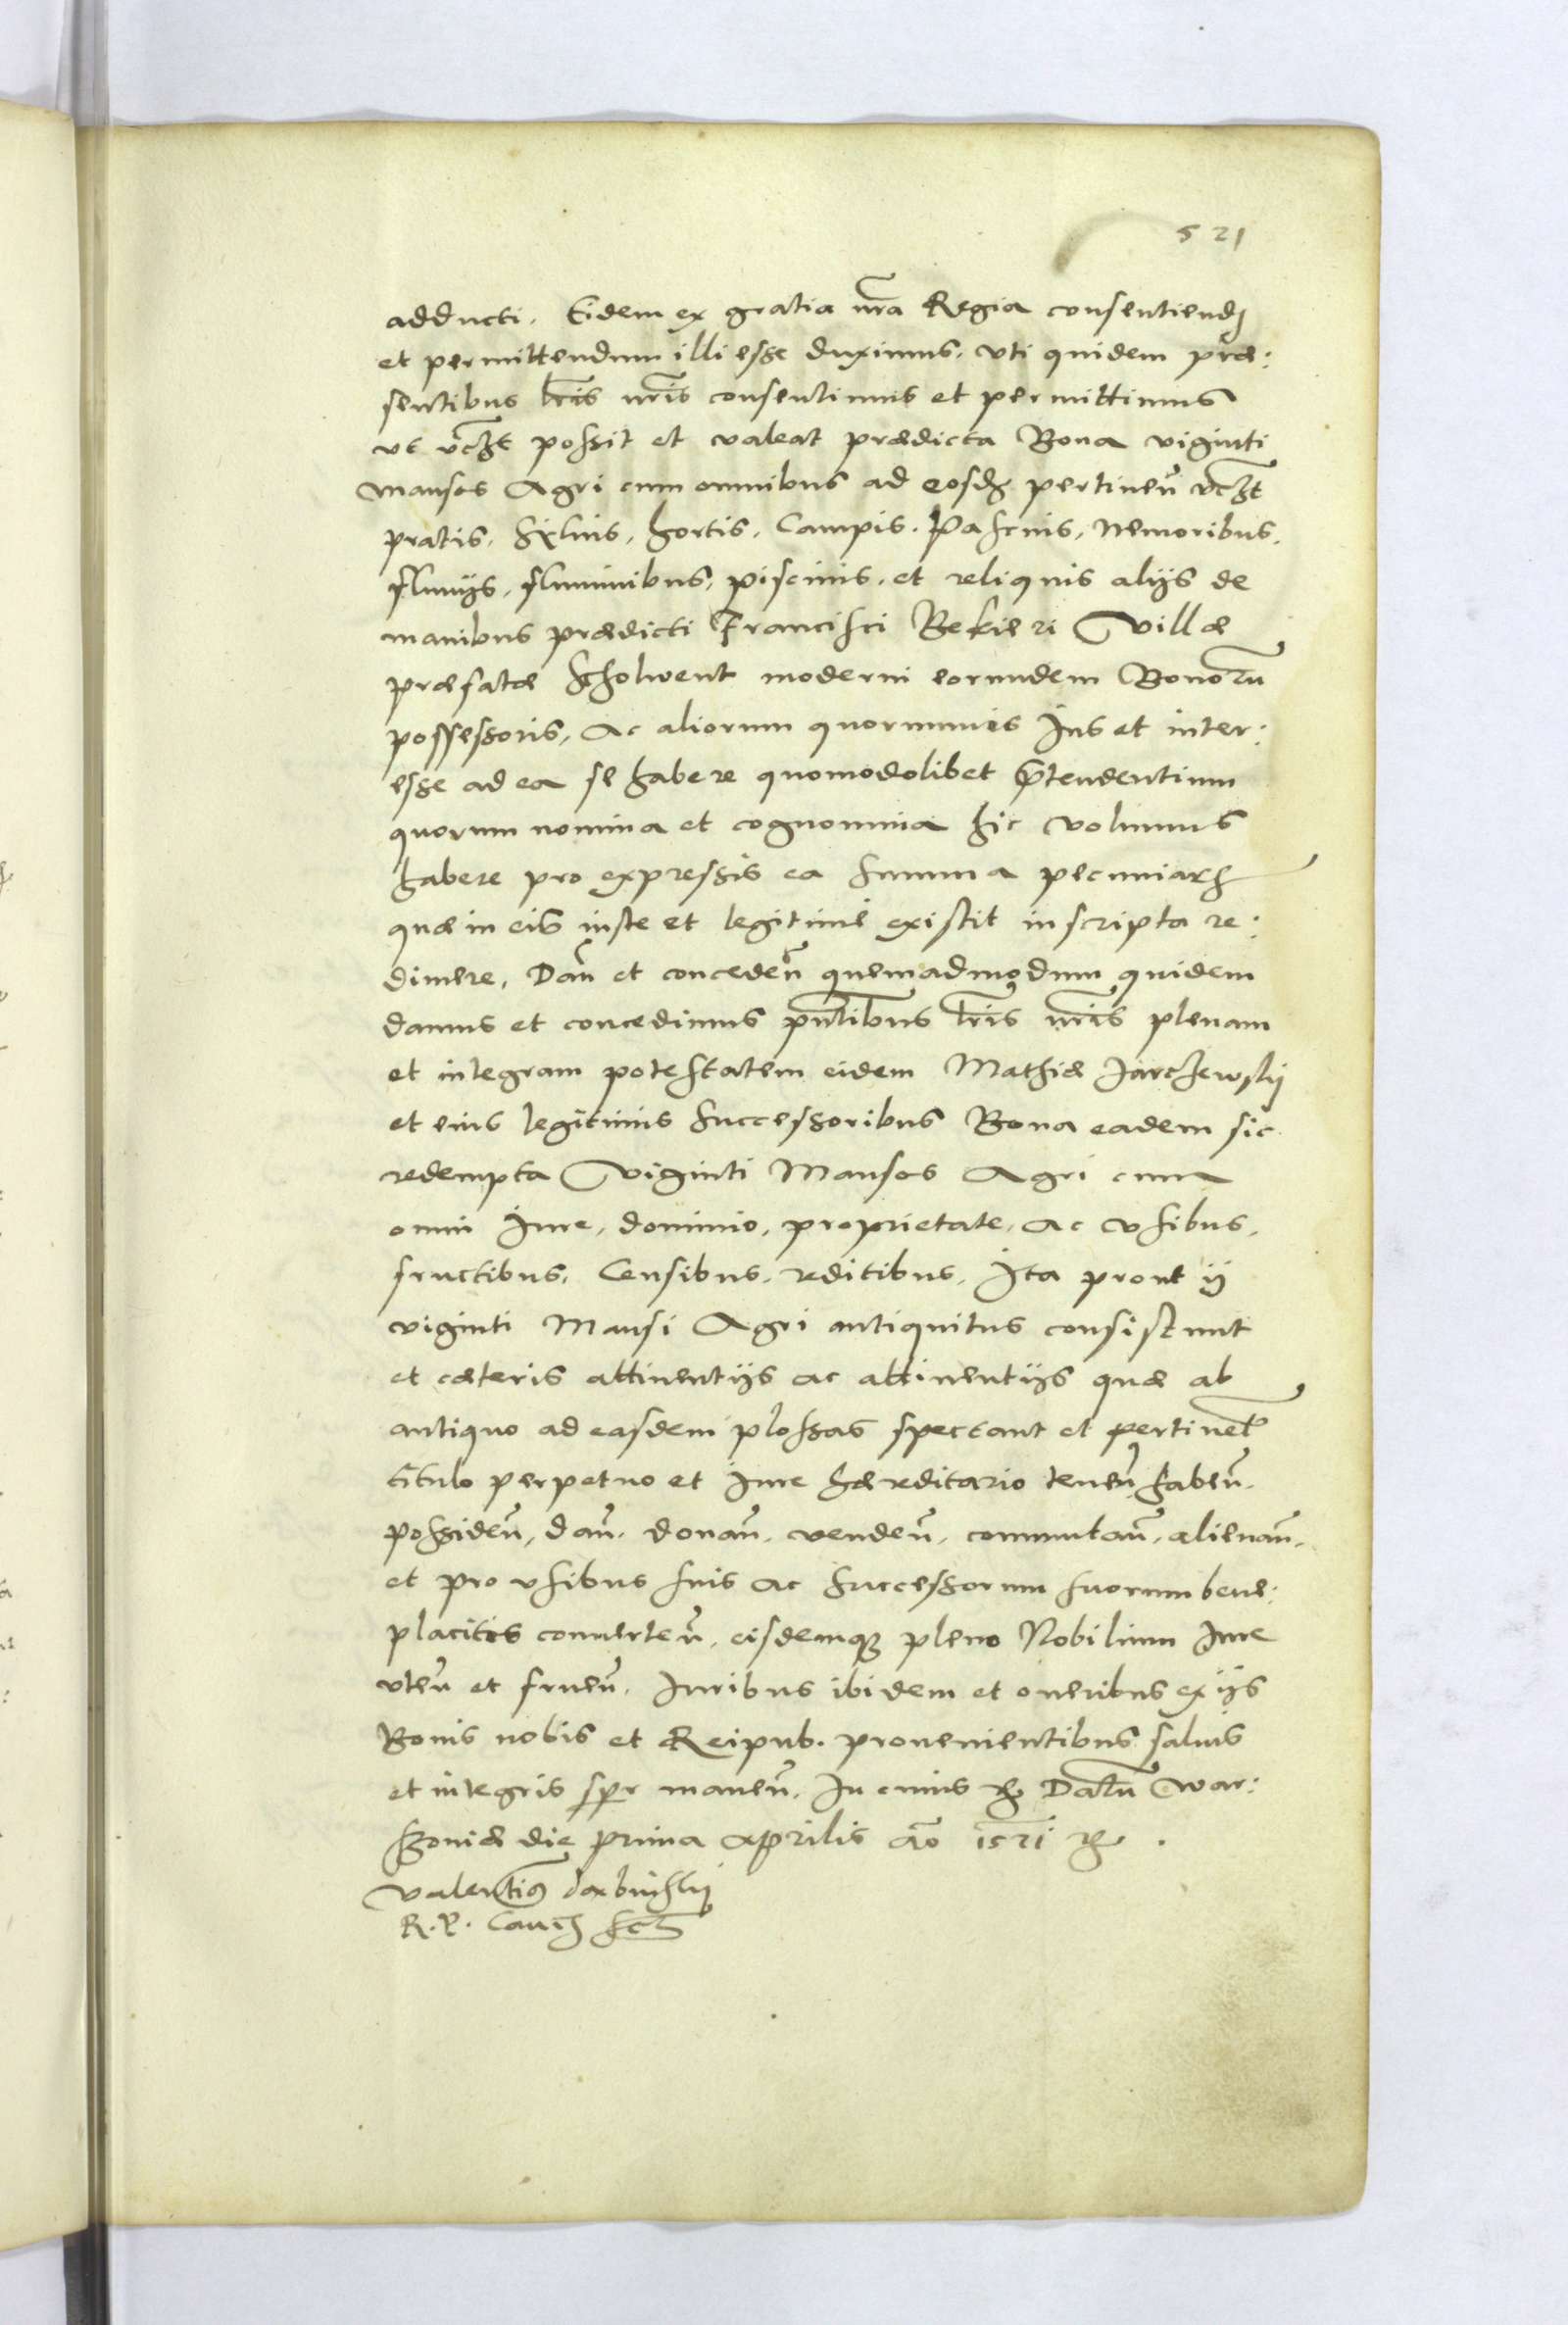 521
adducti. Eidem ex gratia nra Regia consentiend
et permittendum illi esse duximus. vti quidem præ:
sentibus lris nris consentimus et permittimus
vt vczt possit et valeat prædicta Bona viginti
mansos Agri cum omnibus ad eosd pertinen vczt
pratis, syluis, hortis, Campis. Pascuis, Nemoribus.
fluuijs, fluminibus, piscinis. et reliquis alijs de
manibus prædicti Francisci Bekieri Villæ
præfatæ Scholwent moderni eorundem Bonoru
possessoris, Ac aliorum quorumuis Ius et inter:
esse ad ea se habere quomodolibet prtendentium
quorum nomina et cognomina hic volumus
habere pro expressis ea summa pecuniar
quæ in eis iuste et legitimè existit inscripta re:
dimere, Dan et conceden quemadmodum quidem
damus et concedimus pntibus lris nris plenam
et integram potestatem eidem Mathiæ Jarczewskij
et eius legitimis successoribus Bona eadem sic
redempta Viginti Mansos Agri cum
omni Iure, dominio, proprietate, Ac vsibus,
fructibus, Censibus, reditibus, Ita prout ij
viginti Mansi Agri antiquitus consistunt
et cæteris attinentijs ac attinentijs quæ ab
antiquo ad easdem plossas spectant et pertinet
titulo perpetuo et Iure hæreditario tenen, haben.
possiden, dan. donan. venden, commutan, alienan.
et pro vsibus suis ac successorum suorum bene:
placitis conuerten, eisdemq pleno Nobilium Iure
vten et fruen. Iuribus ibidem et oneribus ex ijs
Bonis nobis et Reipub. prouenientibus saluis
et integris spr manen. In cuius r Datu War:
szouiæ die prima Aprilis Ao 1571 r.
Valentin dambinskij
R. P. Canc sst